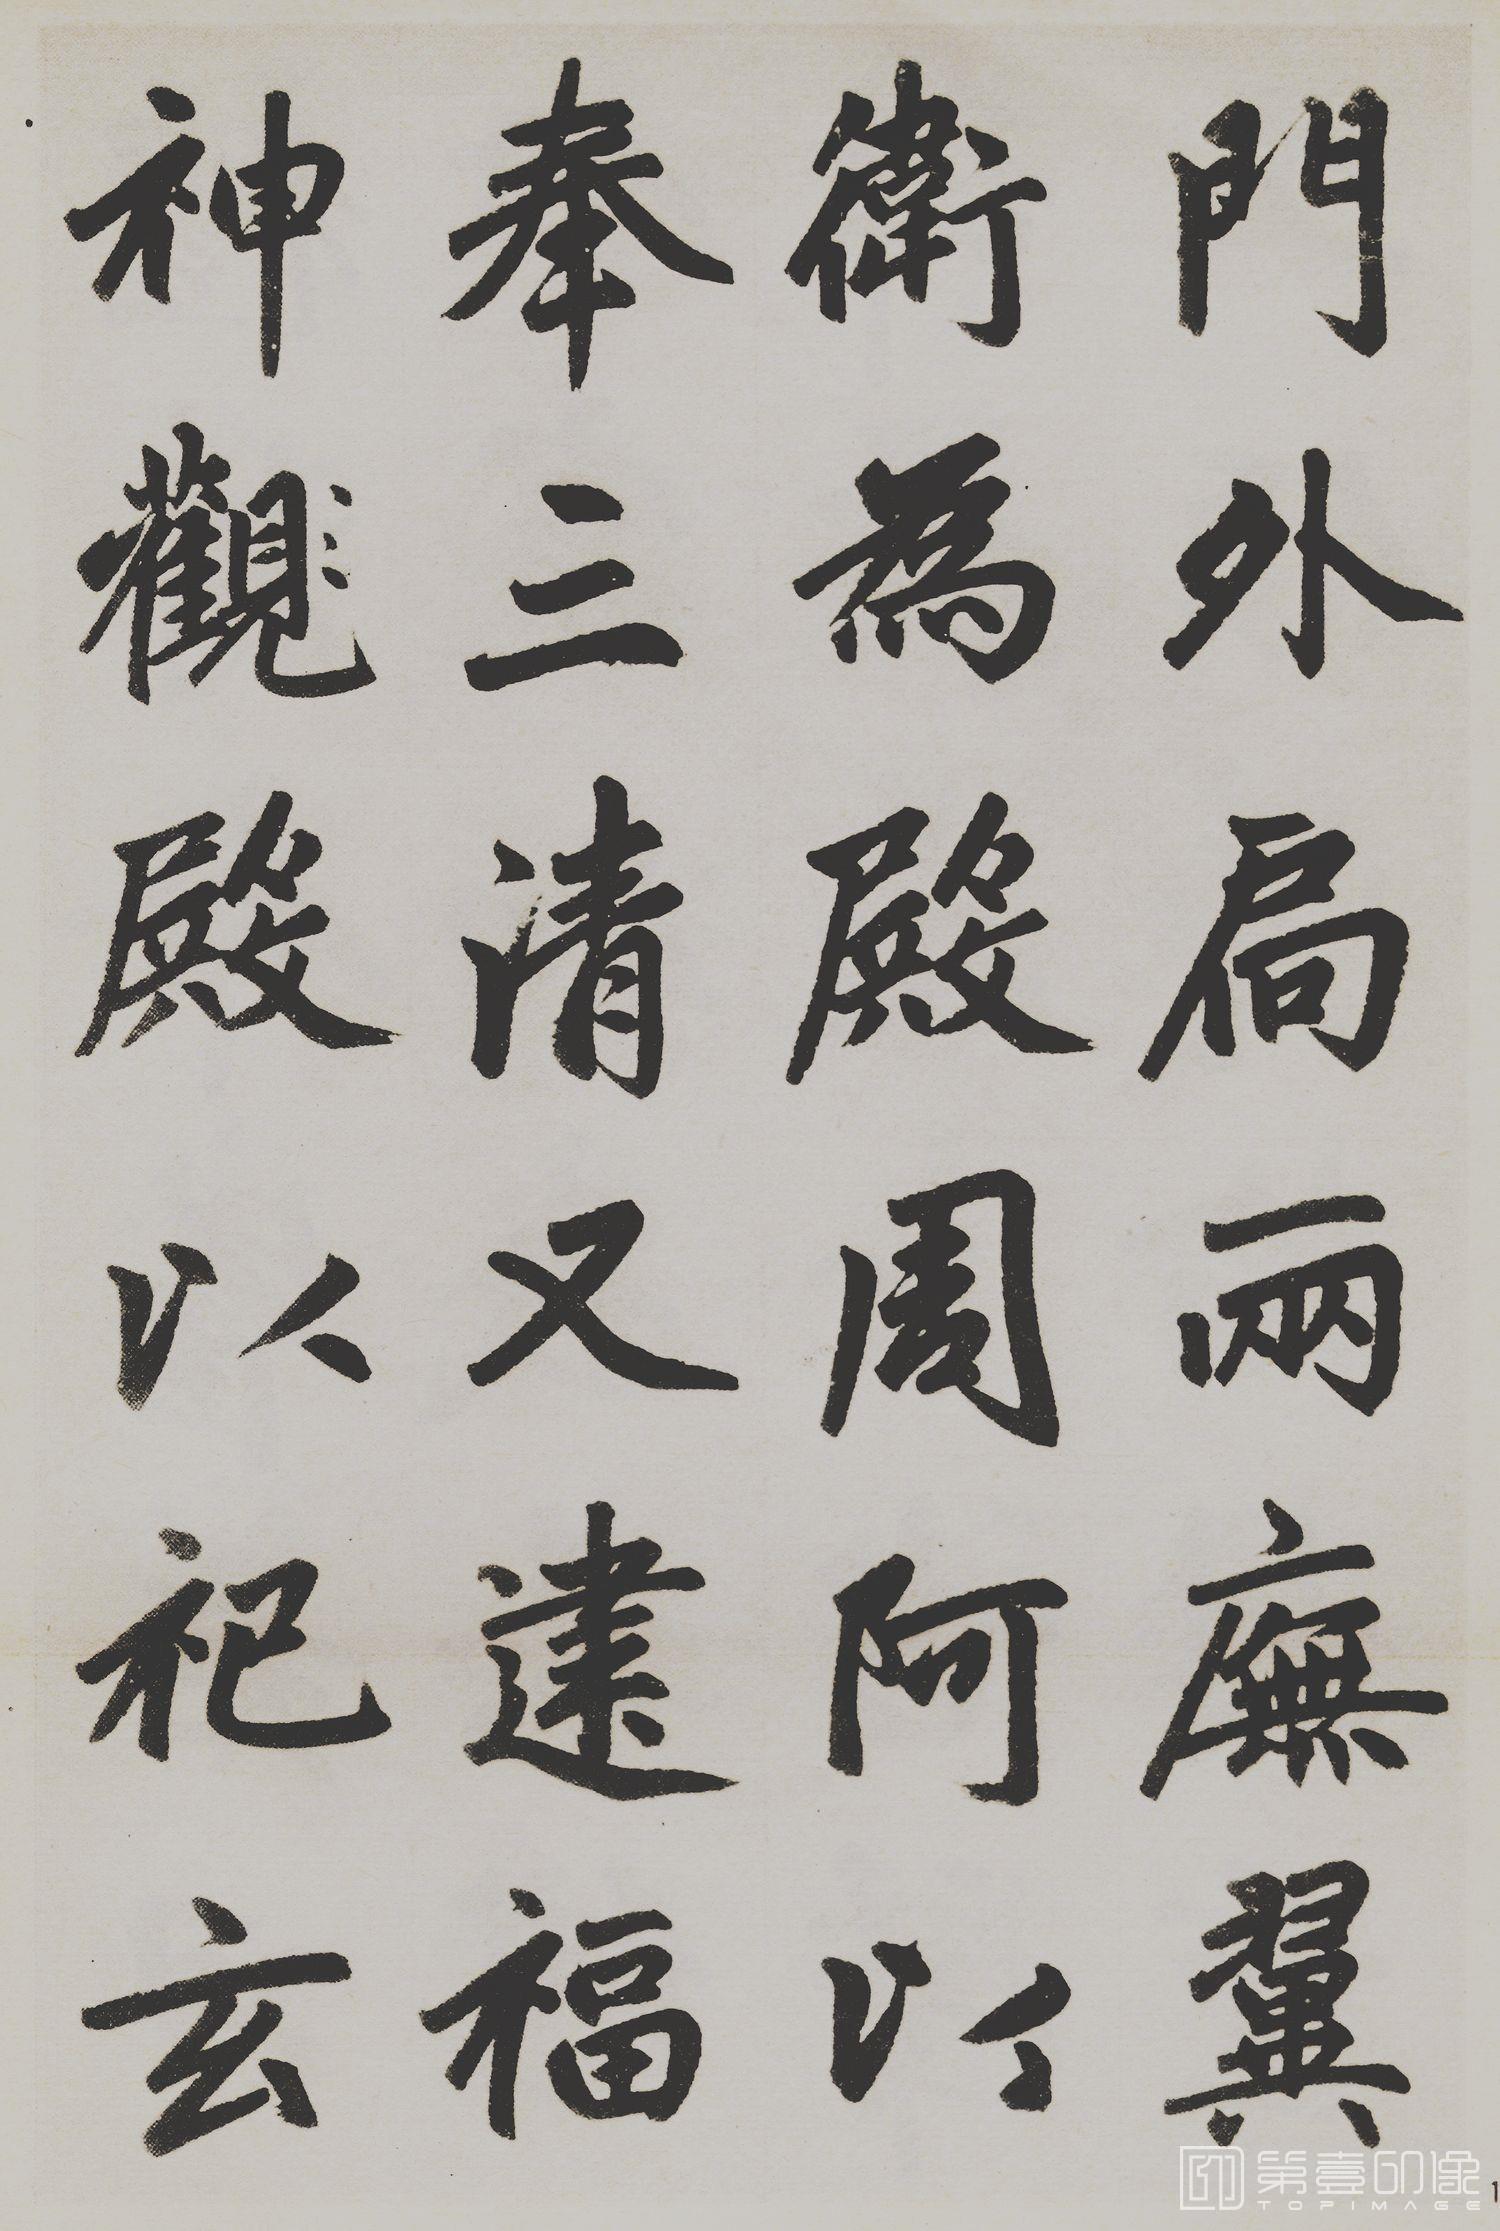 門外扃兩廡翼
衛為殿周阿以
奉三清又建福
神觀殿以祀玄
第壹印像
TOPIMAGE
1